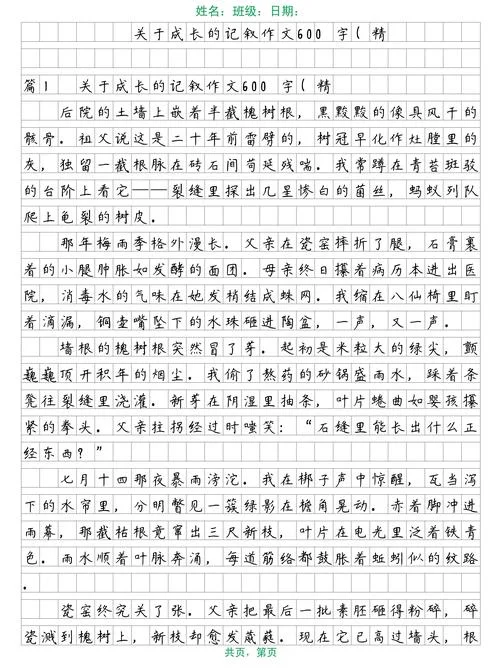 姓名：班级：日期：
关于成长的记叙作文600 字(精
篇1 关于成长的记叙作文600 字(精
后院的土墙上嵌着半截槐树根，黑黢黢的像具风干的
骸骨。祖父说这是二十年前雷劈的，树冠早化作灶膛里的
灰，独留一截根脉在砖石间苟延残喘。我常蹲在青苔斑驳
的台阶上看它——裂缝里探出几星惨白的菌丝，蚂蚁列队
爬上龟裂的树皮。
那年梅雨季格外漫长。父亲在瓷窑摔折了腿，石膏裹
着的小腿肿胀如发酵的面团。母亲终日攥着病历本进出医
院，消毒水的气味在她发梢结成蛛网。我缩在八仙椅里盯
着滴漏，铜壶嘴坠下的水珠砸进陶盆，一声，又一声。
墙根的槐树根突然冒了芽。起初是米粒大的绿尖，颤
巍巍顶开积年的烟尘。我偷了熬药的砂锅盛雨水，踩着条
凳往裂缝里浇灌。新芽在阴湿里抽条，叶片蜷曲如婴孩攥
紧的拳头。父亲拄拐经过时嗤笑：“石缝里能长出什么正
经东西？”
七月十四那夜暴雨滂沱。我在梆子声中惊醒，瓦当泻
下的水帘里，分明瞥见一簇绿影在檐角晃动。赤着脚冲进
雨幕，那截枯根竟窜出三尺新枝，叶片在电光里泛着铁青
色。雨水顺着叶脉奔涌，每道筋络都鼓胀着蚯蚓似的纹路
.
瓷窑终究关了张。父亲把最后一批素胚砸得粉碎，碎
瓷溅到槐树上，新枝却愈发葳蕤。现在它已高过墙头，根
共页，第页